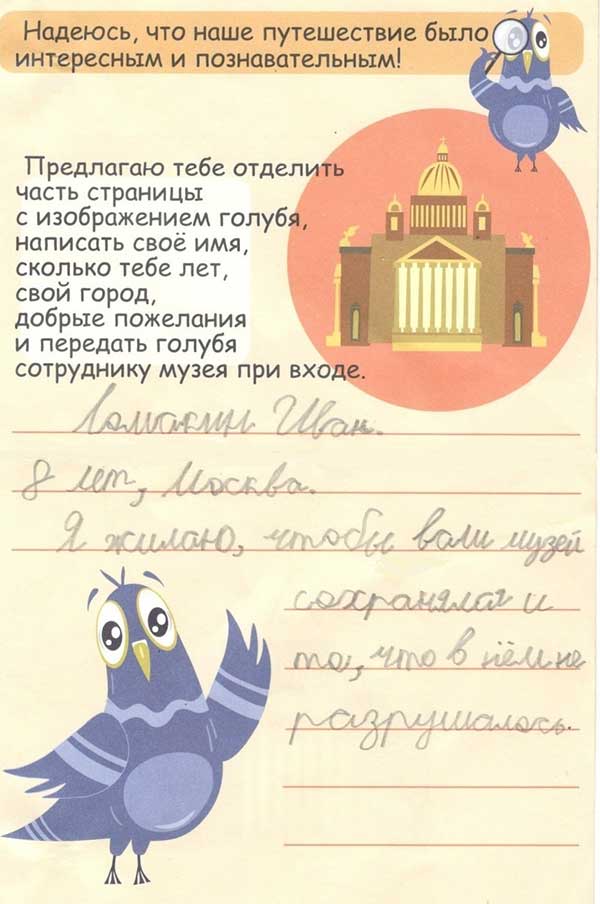 Надеюсь, что наше путешествие было
интересным и познавательным!
Предлагаю тебе отделить
часть страницы
с изображением голубя,
написать своё имя,
сколько тебе лет,
свой город,
добрые пожелания
и передать голубя
сотруднику музея при входе.
Ломакин Иван.
8 лет, Москва.
Я жилаю, чтобы ваш музей
сохранялся и
то, что в нём не
разрушалось.